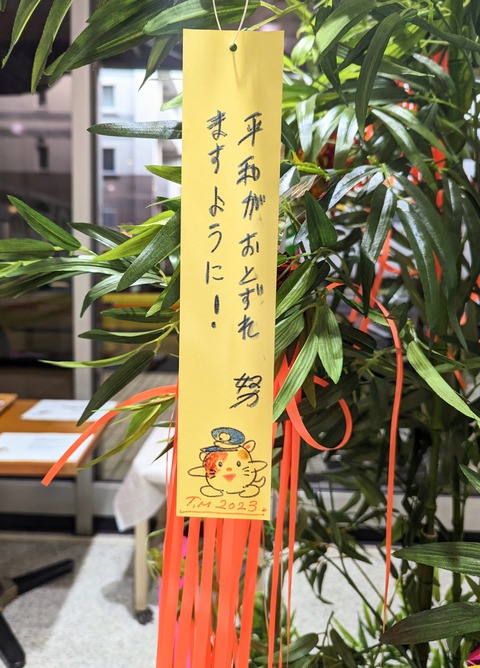 平和がおとずれ
ますように！
努
T.M 2023.